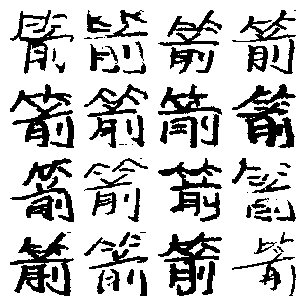 箭箭箭箭
箭箭箭箭
箭箭箭箭
箭箭箭箭